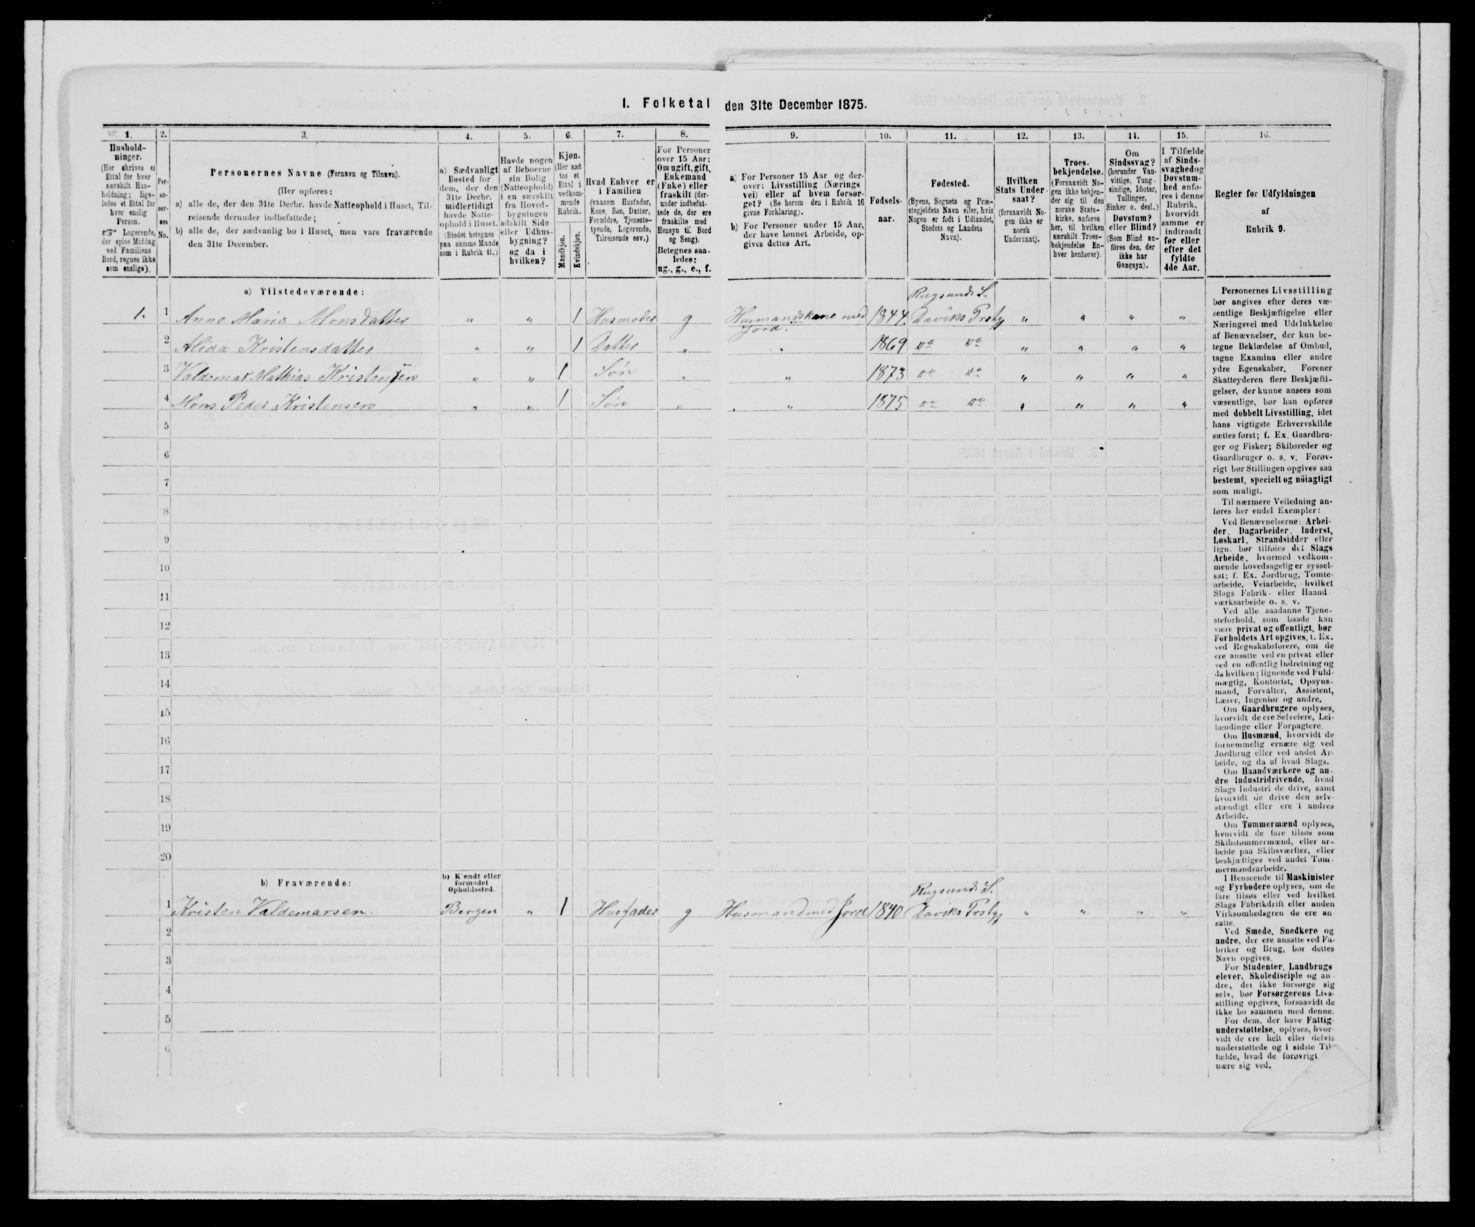 I. Folketal den 31te December 1875.
1. 2. 3. 4. 5. 6. 7. 8. 9. 10. 11. 12. 13. 14. 15. 16.
Hushold-
ninger.
(Her skrives et
Ettal for hver
særskilt Hus-
holdning; lige-
ledes et Ettal for
hver enslig
Person.
Logerende,
der spise Middag
ved Familiens
Bord, regnes ikke
som enslige).
Per-
so-
ner-
nes
No.
Personernes Navne (Fornavn og Tilnavn).
(Her opføres:
a) alle de, der den 31te Decbr. havde Natteophold i Huset, Til-
reisende derunder indbefattede;
b) alle de, der sædvanlig bo i Huset, men vare fraværende
den 31te December.
a) Sædvanligt
Bosted for
dem, der den
31te Decbr.
midlertidigt
havde Natte-
ophold i Huset.
(Stedet betegnes
paa samme Maade
som i Rubrik 11.)
Havde nogen
af Beboerne
sin Bolig
(Natteophold)
i en særskilt
fra Hoved-
bygningen
adskilt Side-
eller Udhus-
bygning?
og da i
hvilken?
Kjøn.
(Her sæt-
tes et
Ettal i
vedkom-
mende
Rubrik.
Mandkjøn.
Kvindekjøn.
Hvad Enhver er
i Familien
(saasom Husfader,
Kone, Søn, Datter,
Forældre, Tjeneste-
tyende, Logerende,
Tilreisende osv.)
For Personer
over 15 Aar:
Om ugift, gift,
Enkemand
(Enke) eller
fraskilt (der-
under indbefat-
tede de, der ere
fraskilte med
Hensyn til Bord
og Seng).
Betegnes saa-
ledes:
ug., g., e., f.
a) For Personer 15 Aar og der-
over: Livsstilling (Nærings-
vei) eller af hvem forsør-
get? (Se herom den i Rubrik 16
givne Forklaring).
b) For Personer under 15 Aar,
der have lønnet Arbeide, op-
gives dettes Art.
Fødsels-
aar.
Fødested.
(Byens, Sognets og Præ-
stegjeldets Navn eller, hvis
Nogen er født i Udlandet,
Stedets og Landets
Navn).
Hvilken
Stats Under-
saat?
(forsaavidt No-
gen ikke er
norsk
Undersaat).
Troes-
bekjendelse.
(Forsaavidt No-
gen ikke bekjen-
der sig til den
norske Stats-
kirke, anføres
her, til hvilken
særskilt Troes-
bekjendelse En-
hver henhører).
Om
Sindssvag?
(herunder Van-
vittige, Tung-
sindige, Idioter,
Tullinger,
Sinker o. desl.)
Døvstum?
eller Blind?
(Som Blind an-
føres den, der
ikke har
Gangsyn).
I Tilfælde
af Sinds-
svaghed og
Døvstum-
hed anfø-
res i denne
Rubrik,
hvorvidt
samme er
indtraadt
før eller
efter det
fyldte
4de Aar.
Regler for Udfyldningen
af
Rubrik 9.
a) Tilstedeværende:
Rugsunds S.
1. 1 Anne Marie Monsdatter " " 1 Husmoder g Husmandskone med Jord. 1844 Daviks Prstg " " " "
2 Alida Kristensdatter " " 1 Datter " " 1869 do do " " " "
3 Valdemar Mathias Kristensen " " 1 Søn " " 1873 do do " " " "
4 Mons Peder Kristensen " " 1 Søn " " " 1875 do do " " " "
5
6
7
8
9
10
11
12
13
14
15
16
17
18
19
20
b) Fraværende:
b) Kjendt eller
formodet
Opholdssted.
Rugsunds S.
1 Kristen Valdemarsen Bergen " 1 Husfader g Husmand med Jord 1840 Daviks Prstg " " " "
2
3
4
5
6
Personernes Livsstilling
bør angives efter deres væ-
sentlige Beskjæftigelse eller
Næringsvei med Udelukkelse
af Benævnelser, der kun be-
tegne Beklædelse af Ombud,
tagne Examina eller andre
ydre Egenskaber. Forener
Skatteyderen flere Beskjæfti-
gelser, der kunne ansees som
væsentlige, bør han opføres
med dobbelt Livsstilling, idet
hans vigtigste Erhvervskilde
sættes først; f. Ex. Gaardbru-
ger og Fisker; Skibsreder og
Gaardbruger o. s. v. Forøv-
rigt bør Stillingen opgives saa
bestemt, specielt og nöiagtigt
som muligt.
Til nærmere Veiledning an-
føres her endel Exempler:
Ved Benævnelserne: Arbei-
der, Dagarbeider, Inderst,
Løskarl, Strandsidder eller
lign. bør tilføies det Slags
Arbeide, hvormed vedkom-
mende hovedsagelig er syssel-
sat; f. Ex. Jordbrug, Tomte-
arbeide, Veiarbeide, hvilket
Slags Fabrik- eller Haand-
værksarbeide o. s. v.
Ved alle saadanne Tjene-
steforhold, som baade kan
være privat og offentligt, bør
Forholdets Art opgives, t. Ex.
ved Regnskabsførere, om de
ere ansatte ved en privat eller
ved en offentlig Indretning og
da hvilken; lignende ved Fuld-
mægtig, Kontorist, Opsyns-
mand, Forvalter, Assistent,
Lærer, Ingeniør og andre.
Om Gaardbrugere oplyses,
hvorvidt de ere Selveiere, Lei-
lændinge eller Forpagtere.
Om Husmænd, hvorvidt de
fornemmelig ernære sig ved
Jordbrug eller ved andet Ar-
beide, og da af hvad Slags.
Om Haandværkere og an-
dre Industridrivende, hvad
Slags Industri de drive, samt
hvorvidt de drive den selv-
stændigt eller ere i andres
Arbeide.
Om Tømmermænd oplyses,
hvorvidt de fare tilsøs som
Skibstømmermænd, eller ar-
beide paa Skibsværfter, eller
beskjæftiges ved andet Tøm-
mermandsarbeide.
I Henseende til Maskinister
og Fyrbødere oplyses, om de
fare tilsøs eller ved hvilket
Slags Fabrikdrift eller anden
Virksomhedsgren de ere an-
satte.
Ved Smede, Snedkere og
andre, der ere ansatte ved Fa-
briker og Brug, bør dettes
Navn opgives.
For Studenter, Landbrugs-
elever, Skoledisciple og an-
dre, der ikke forsørge sig
selv, bør Forsørgerens Livs-
stilling opgives, forsaavidt de
ikke bo sammen med denne.
For dem, der have Fattig-
understøttelse, oplyses, hvor-
vidt de ere helt eller delvis
understøttede og i sidste Til-
fælde, hvad de forøvrigt
nære sig ved.